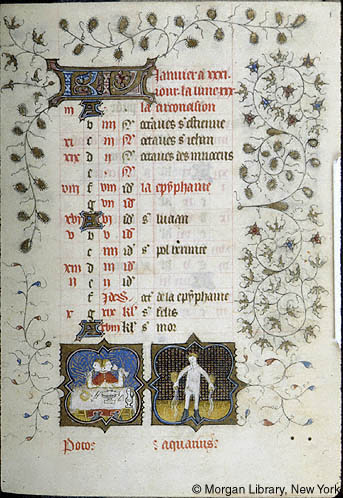 KL Janvier a xxxi.
iour. la lune xxx
iii A la circoncision
b iiii N octaves s' estienne
xi c iii N octaves s' iehan
xix d ii N octaves des innocens
e N
viii f viii id la epyphanie
g vii id
xvi A vi id s' lucian
v b v id
c iiii id s'
xiii d iii id
ii e ii id
f Idus oct' de la epyphanie
x g xix kl' s' felix
A xviii kl' s' mor
Poto aquarius
© Morgan Library, New York